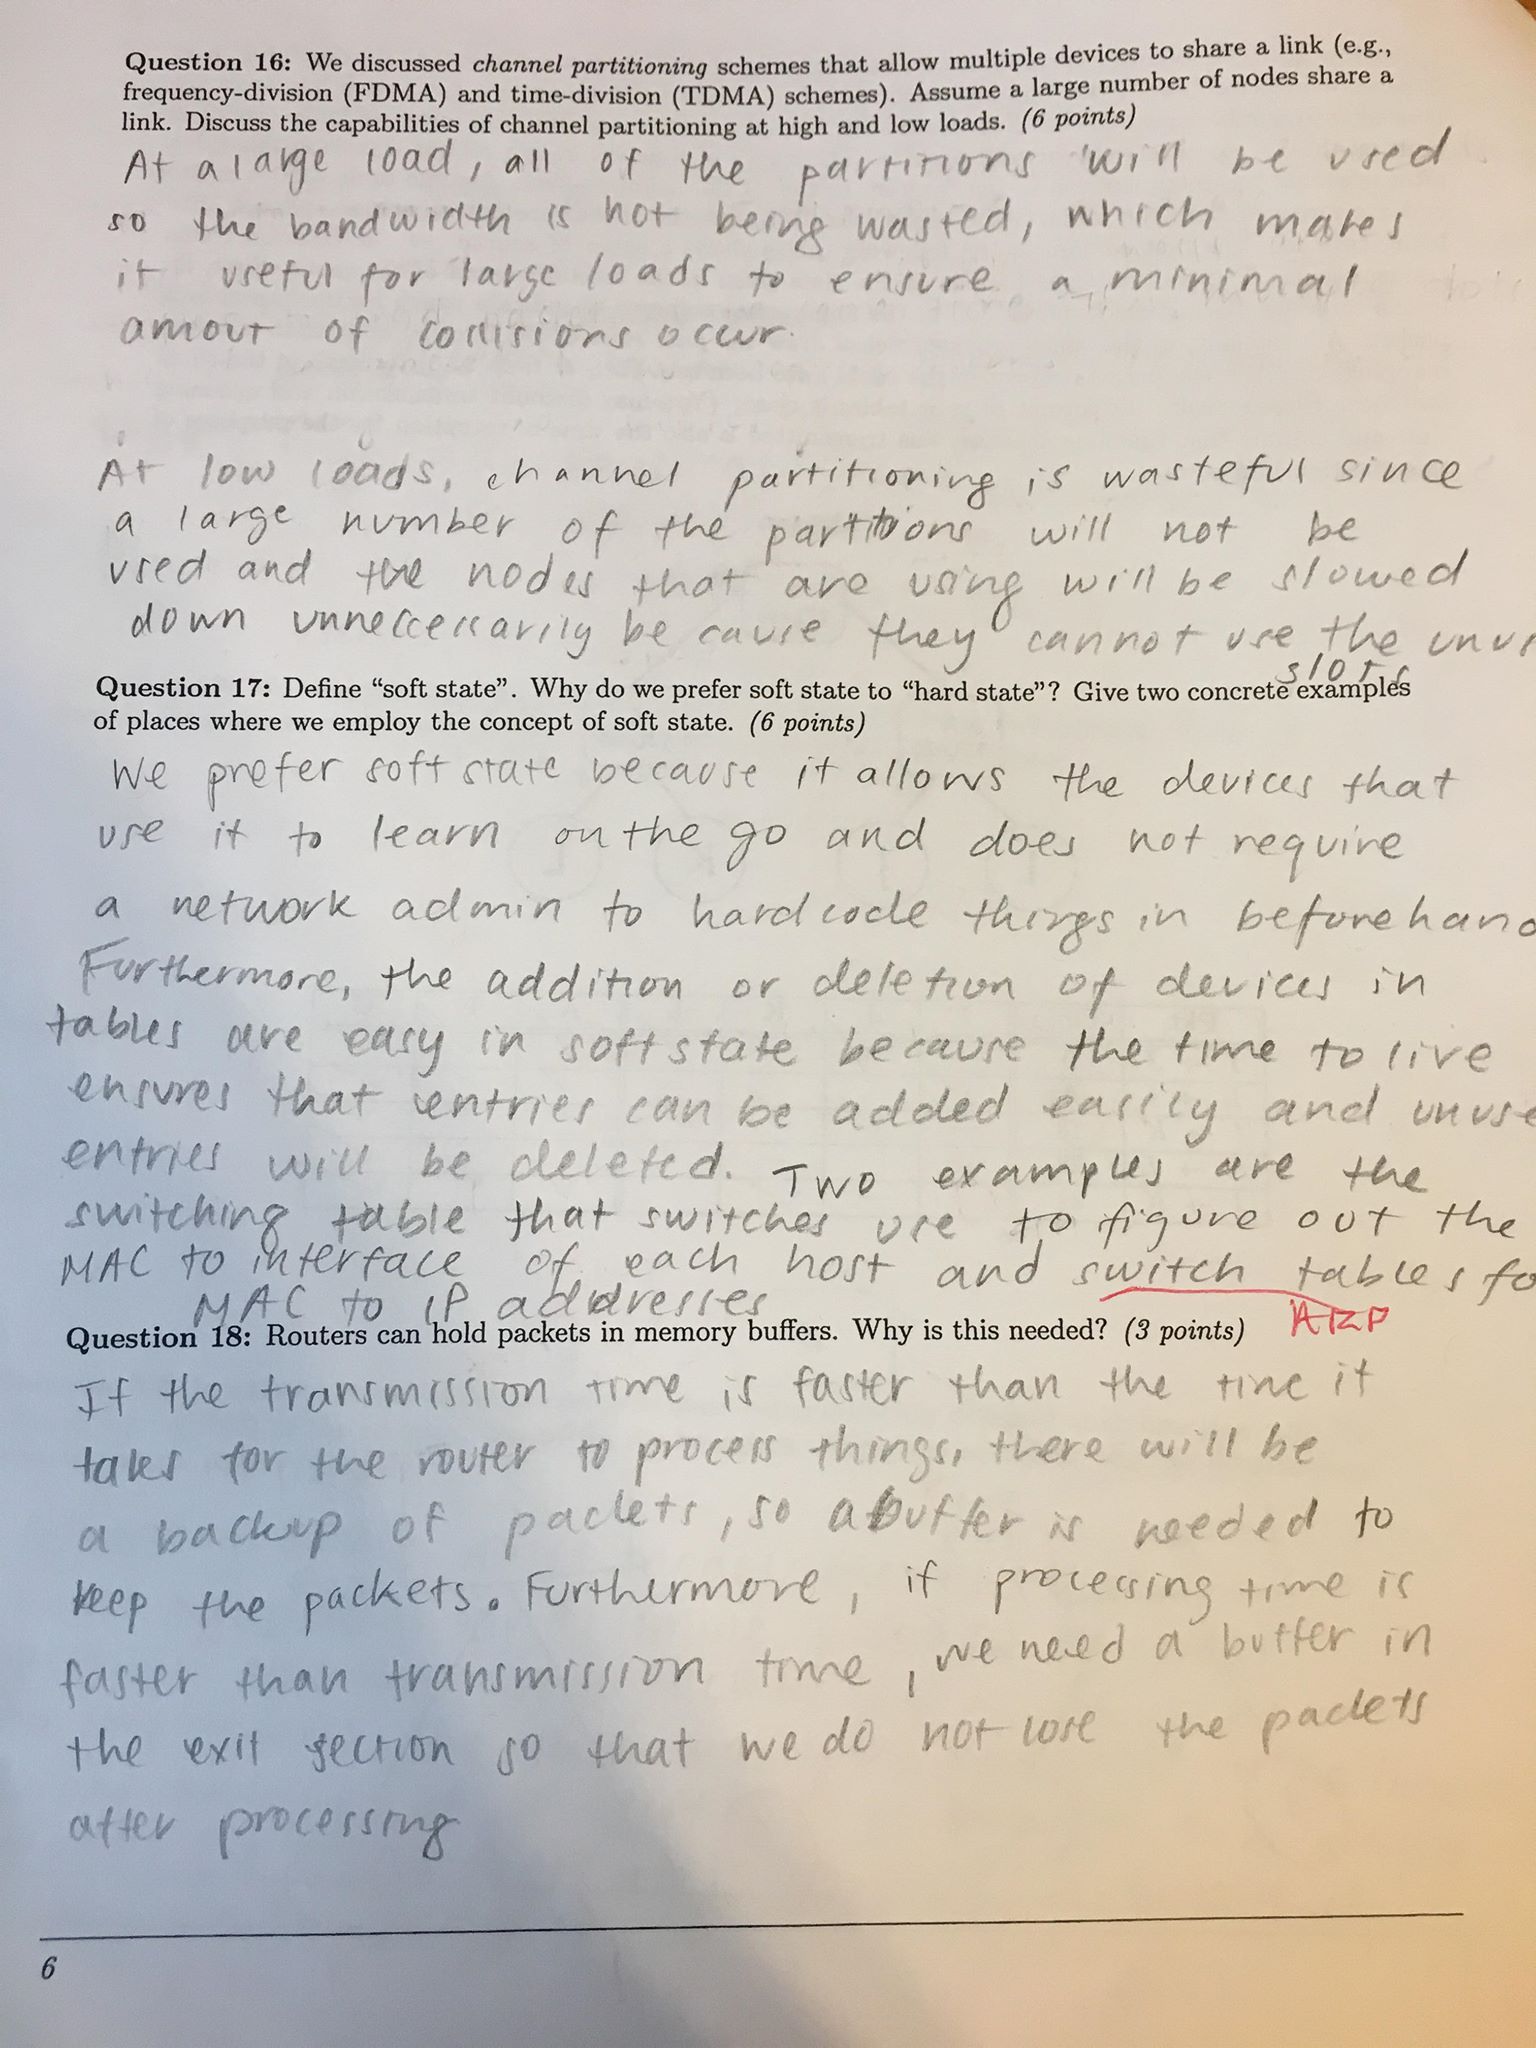 Question 16: We discussed channel partitioning schemes that allow multiple devices to share a link (e.g.,
frequency-division (FDMA) and time-division (TDMA) schemes). Assume a large number of nodes share a
link. Discuss the capabilities of channel partitioning at high and low loads. (6 points)
At a large load, all of the partitions will be used
so the bandwidth is not being wasted, which makes
it useful for large loads to ensure a minimal
amout of collisions occur.
At low loads, channel partitioning is wasteful since
a large number of the partitions will not be
used and the nodes that are using will be slowed
down unneccessarily because they cannot use the unus
slots
Question 17: Define “soft state”. Why do we prefer soft state to “hard state”? Give two concrete examples
of places where we employ the concept of soft state. (6 points)
We prefer soft state because it allows the devices that
use it to learn on the go and does not require
a network admin to hardcode things in beforehand
Furthermore, the addition or deletion of devices in
tables are easy in soft state because the time to live
ensures that entries can be added easily and unuse
entries will be deleted. Two examples are the
switching table that switches use to figure out the
MAC to interface of each host and switch tables fo
MAC to IP addresses
ARP
Question 18: Routers can hold packets in memory buffers. Why is this needed? (3 points)
If the transmission time is faster than the time it
takes for the router to process things, there will be
a backup of packets, so a buffer is needed to
keep the packets. Furthermore, if processing time is
faster than transmission time, we need a buffer in
the exit section so that we do not lose the packets
after processing
6